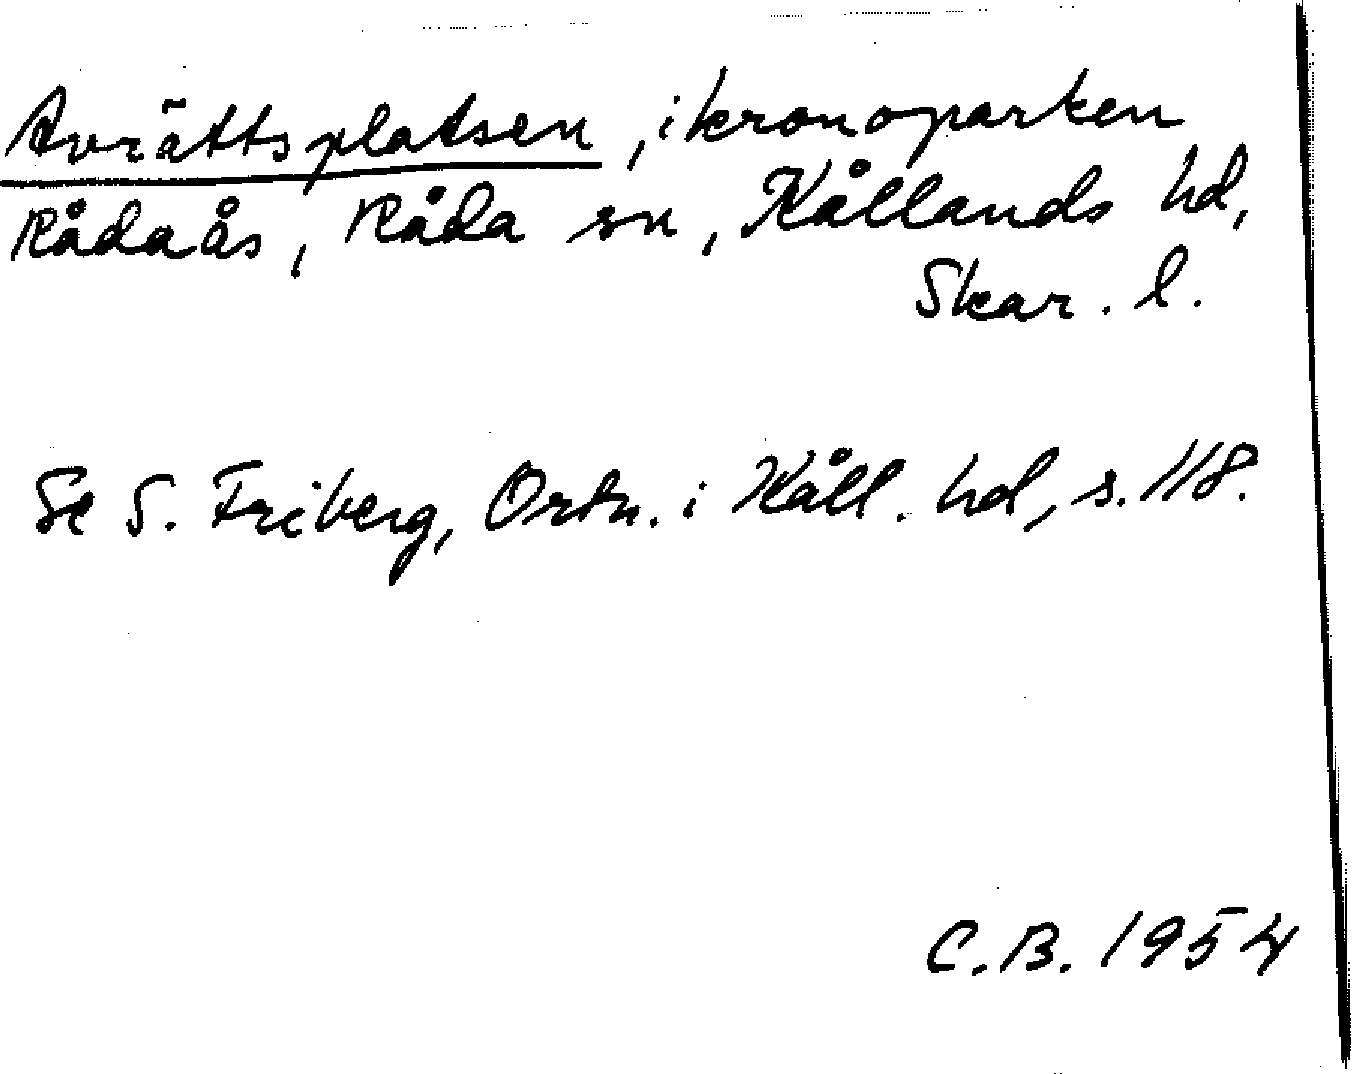 Avrättsplatsen, i kronoparken
Rådaås, Råda sn, Kållands hd,
Skar. l.
Se S. Friberg, Ortn. i Kåll. hd, s. 118.
C.B. 1954